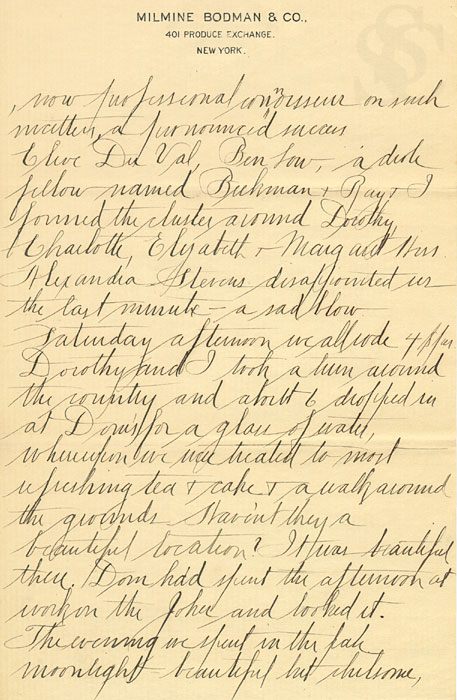 MILMINE BODMAN & CO.,
401 PRODUCE EXCHANGE.
NEW YORK.
, now professional connoisseur on such
matters, a pronounced success
Clive Du Val, Ben Low, a dude
fellow named Beekman & Ray & I
formed the cluster around Dorothy,
Charlotte, Elizabeth & Margaret
Alexandra Stevens disappointed us
the last minute – a sad blow
Saturday afternoon we all rode
Dorothy and I took a turn around
the country and about 6 dropped in
at Dom's for a glass of water,
whereupon we were treated to most
refreshing tea & cake & a walk around
the grounds Haven't they a
beautiful location? It was beautiful
there. Dom had spent the afternoon at
work on the Joker and looked it.
The evening we spent in the pale
moonlight beautiful but chilsome,